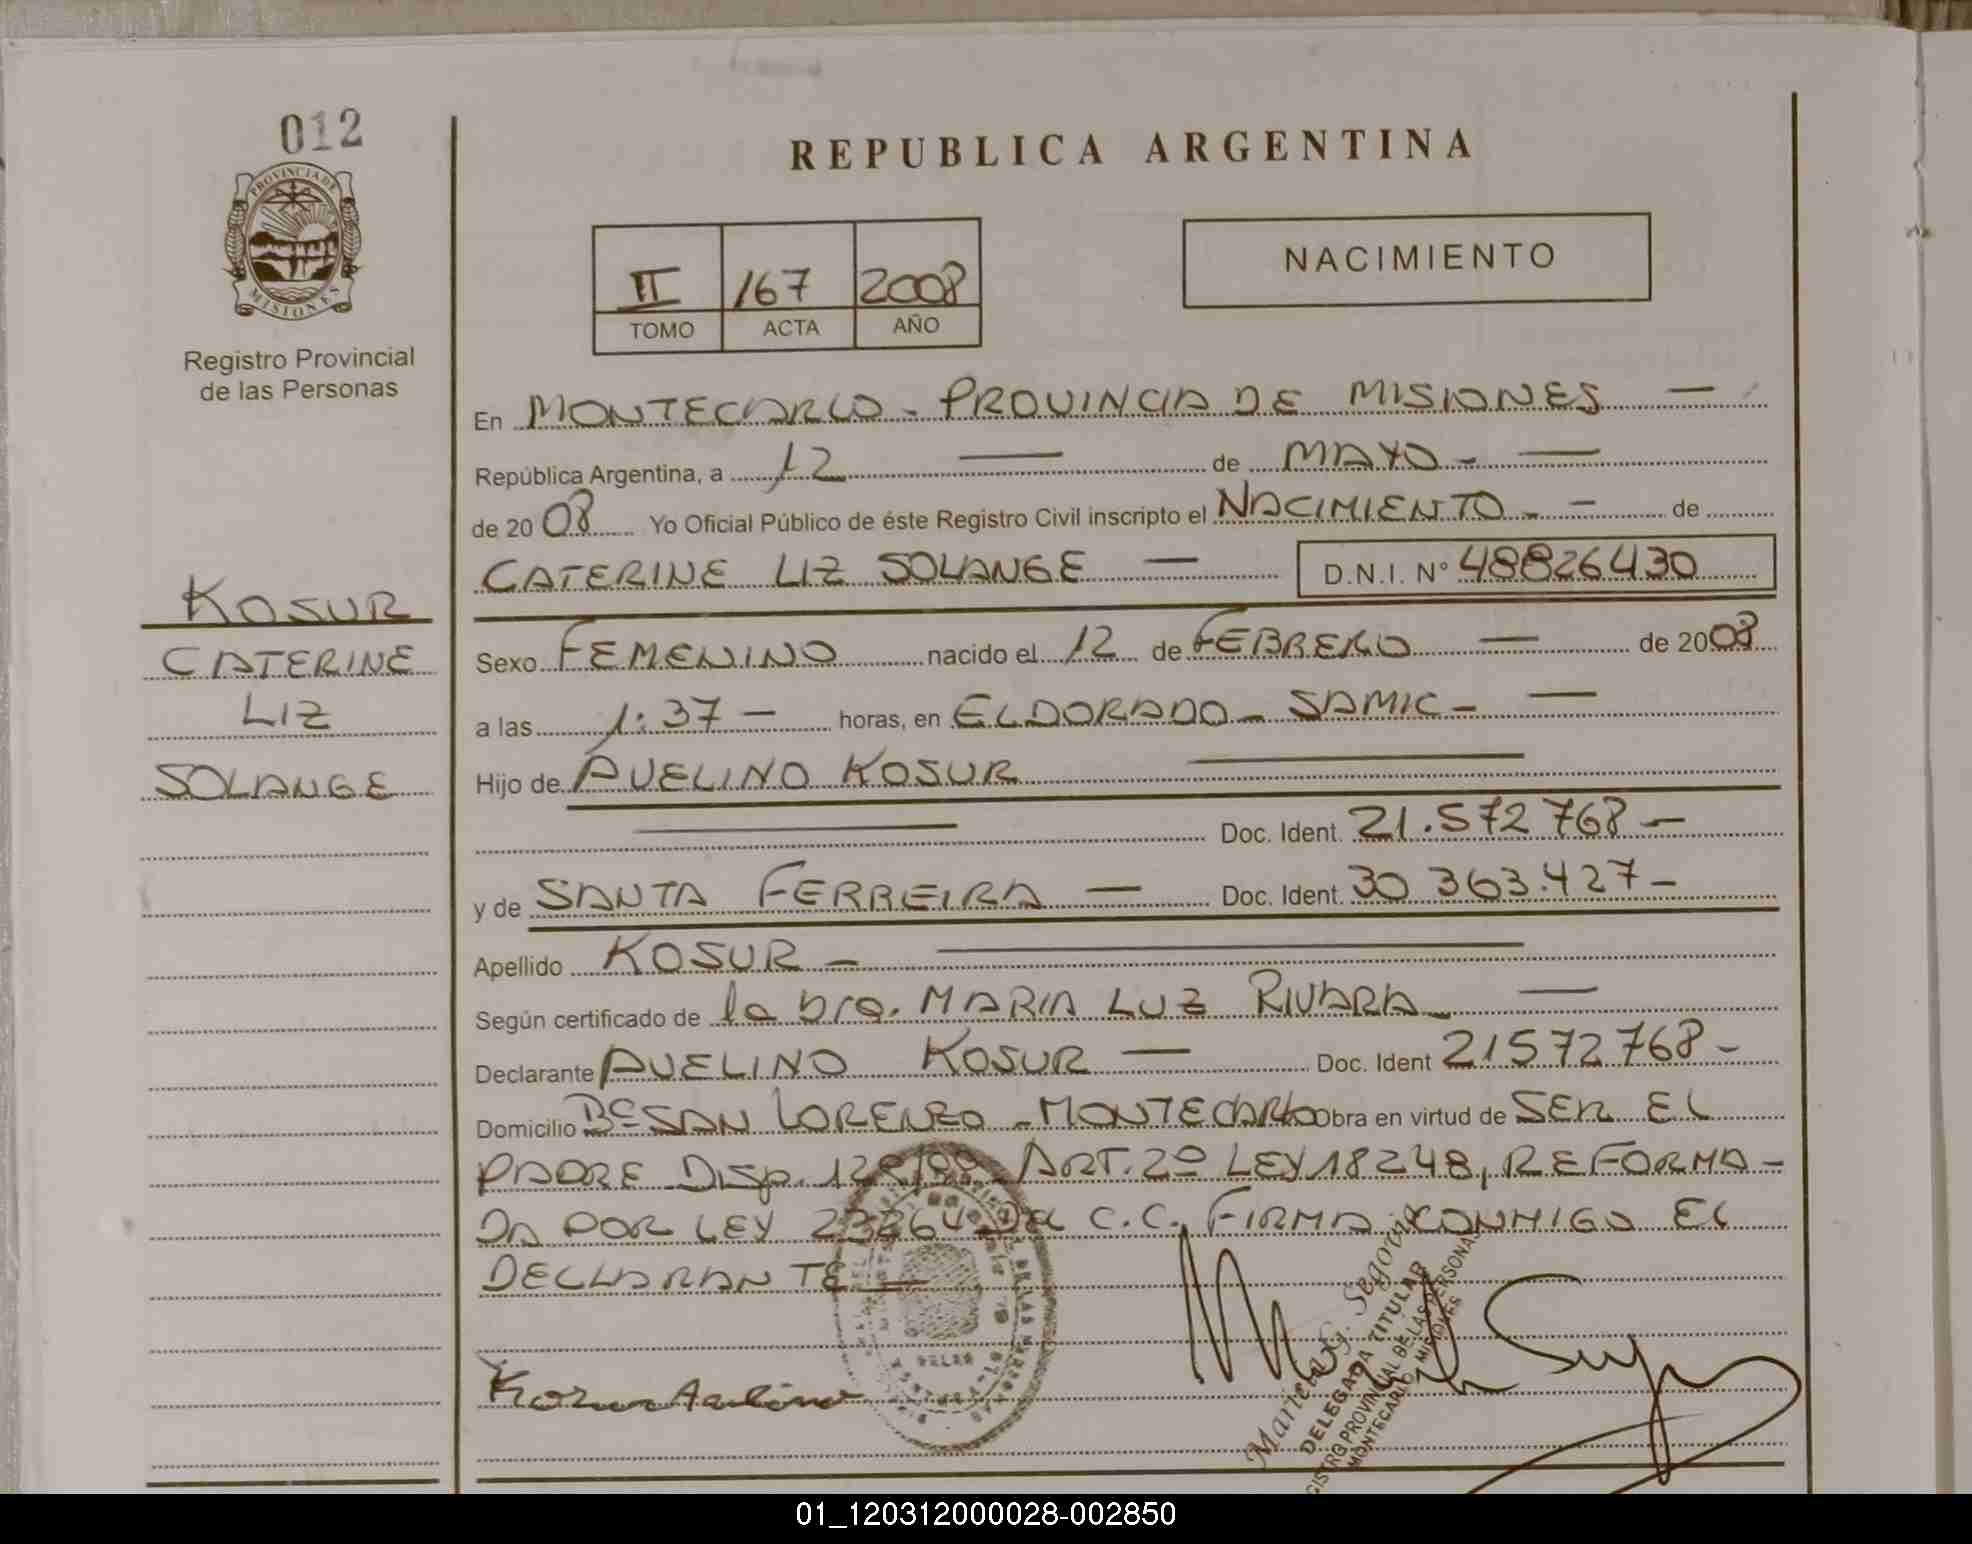 012
PROVINCIA DE
MISIONES
Registro Provincial
de las Personas
KOSUR
CATERINE
LIZ
SOLANGE
REPUBLICA ARGENTINA
II 167 2008
TOMO ACTA AÑO
NACIMIENTO
En MONTECARLO - PROVINCIA DE MISIONES —
República Argentina, a 12 — de MAYO - —
de 2008 Yo Oficial Público de éste Registro Civil inscripto el NACIMIENTO - - de
CATERINE LIZ SOLANGE — D.N.I. N° 48826430
Sexo FEMENINO nacido el 12 de FEBRERO — de 2008
a las 1:37 - horas, en ELDORADO - SAMIC - —
Hijo de AVELINO KOSUR —
— Doc. Ident. 21.572 768 -
y de SANTA FERREIRA — Doc. Ident. 30 363.427 -
Apellido KOSUR - —
Según certificado de la Dra. MARIA LUZ RIVARA - —
Declarante AVELINO KOSUR — Doc. Ident 21572768 -
Domicilio Bº SAN LORENZO - MONTECARLO Obra en virtud de SER EL
PADRE Disp. ART. 2º LEY 18248, REFORMA -
DA POR LEY 23264 DEL C.C. FIRMA CONMIGO EL
DECLARANTE —
Kosur Avelino
DELEGADA TITULAR
REGISTRO PROVINCIAL DE LAS PERSONAS
MONTECARLO MISIONES
01_120312000028-002850